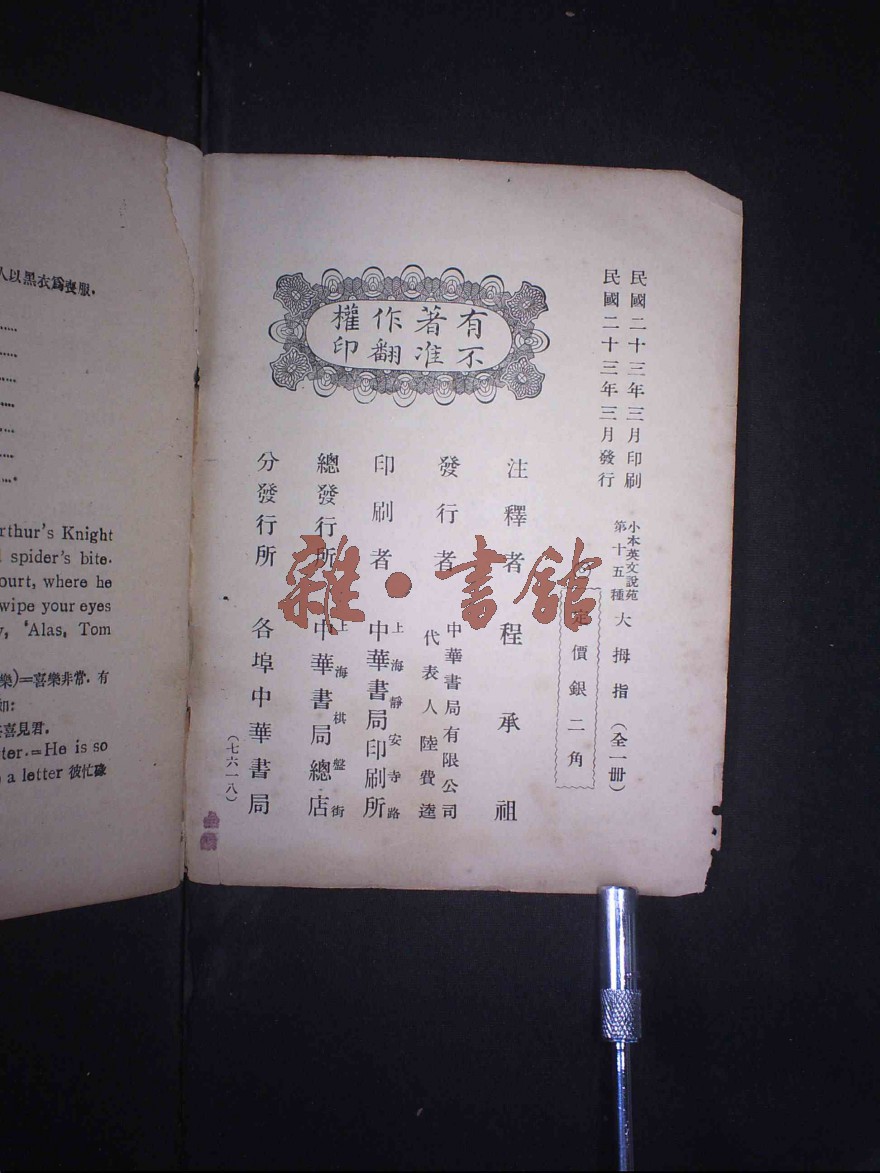 人以黑衣爲喪服.
rthur's Knight
spider's bite.
ourt, where he
wipe your eyes
'Alas, Tom
樂)=喜樂非常. 有
如:
喜見君.
ter.=He is so
a letter 彼忙碌
民國二十三年三月印刷
民國二十三年三月發行
小本英文說苑
第十五種
大拇指(全一册)
定價銀二角
有著作權
不准翻印
注釋者 程承祖
發行者 中華書局有限公司
代表人陸費逵
印刷者 上海靜安寺路
中華書局印刷所
總發行所 上海棋盤街
中華書局總店
分發行所 各埠中華書局
(七六一八)
雜·書館